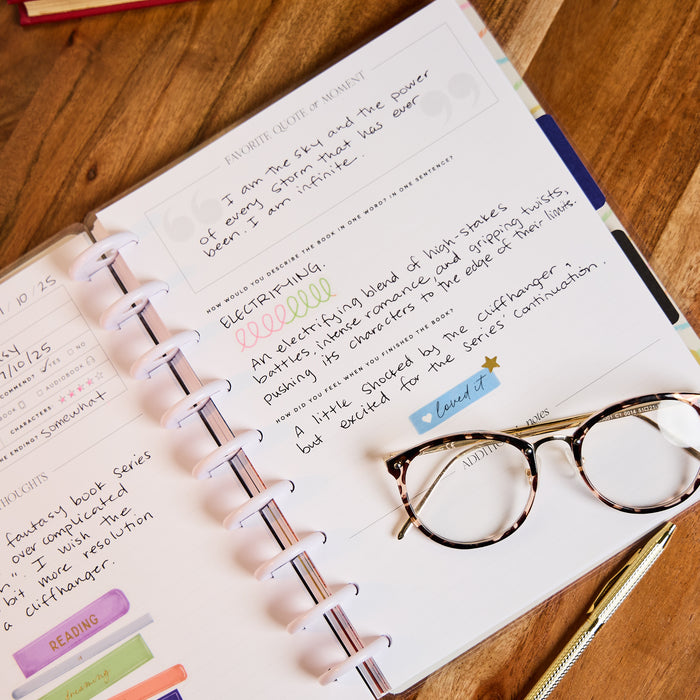 1/10/25
7/10/25
YES NO
AUDIOBOOK
CHARACTERS
ENDING?
somewhat
THOUGHTS
fantasy book series
over complicated
I wish the
bit more resolution
a cliffhanger.
READING
dreaming
FAVORITE QUOTE or MOMENT
I am the sky and the power
of every storm that has ever
been. I am infinite.
HOW WOULD YOU DESCRIBE THE BOOK IN ONE WORD? IN ONE SENTENCE?
ELECTRIFYING.
An electrifying blend of high-stakes
battles, intense romance, and gripping twists,
pushing its characters to the edge of their limits.
HOW DID YOU FEEL WHEN YOU FINISHED THE BOOK?
A little shocked by the cliffhanger,
but excited for the series' continuation.
loved it
notes